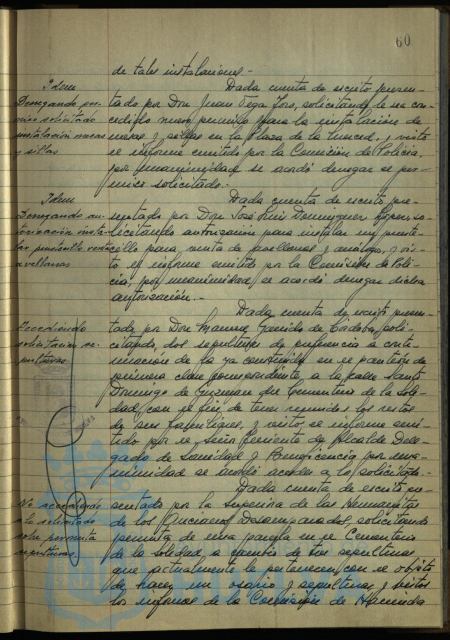 60
de tales instalaciones.-
Idem
Denegando per-
miso solicitado
instalación mesas
y sillas
Dada cuenta de escrito presen-
tado por Don Juan Vega Toro, solicitando le sea con-
cedido nuevo permiso para la instalación de
mesas y sillas en la Plaza de la Merced, y visto
el informe emitido por la Comisión de Policía,
por unanimidad se acordó denegar el per-
miso solicitado.-
Idem
Denegando au-
torización insta-
lar puestecillo venta
avellanas
Dada cuenta de escrito pre-
sentado por Don José Luis Dominguez López, so-
licitando autorización para instalar un pueste-
cillo para venta de avellanas y análogo, y vis-
to el informe emitido por la Comisión de Poli-
cía, por unanimidad, se acordó denegar dicha
autorización.-
Accediendo
solicitud se-
pulturas
Dada cuenta de escrito presen-
tado por Don Manuel Garrido de Córdoba, soli-
citando dos sepulturas de preferencia a conti-
nuación de la ya construida en el panteón de
primera clase correspondiente a la calle Santo
Domingo de Guzman del Cementerio de la Sole-
dad, con el fin de tener reunidos los restos
de sus familiares, y visto el informe emi-
tido por el Señor Teniente de Alcalde Dele-
gado de Sanidad y Beneficencia, por una-
nimidad se acordó acceder a lo solicitado.
No accediendo
a lo solicitado
sobre permuta
sepulturas
Dada cuenta de escrito pre-
sentado por la Superiora de las Hermanitas
de los Ancianos Desamparados, solicitando
permuta de una parcela en el Cementerio
de la Soledad, a cambio de tres sepulturas
que actualmente le pertenecen, con el objeto
de hacer un osario y sepulturas, y vistos
los informes de la Comisión de Hacienda